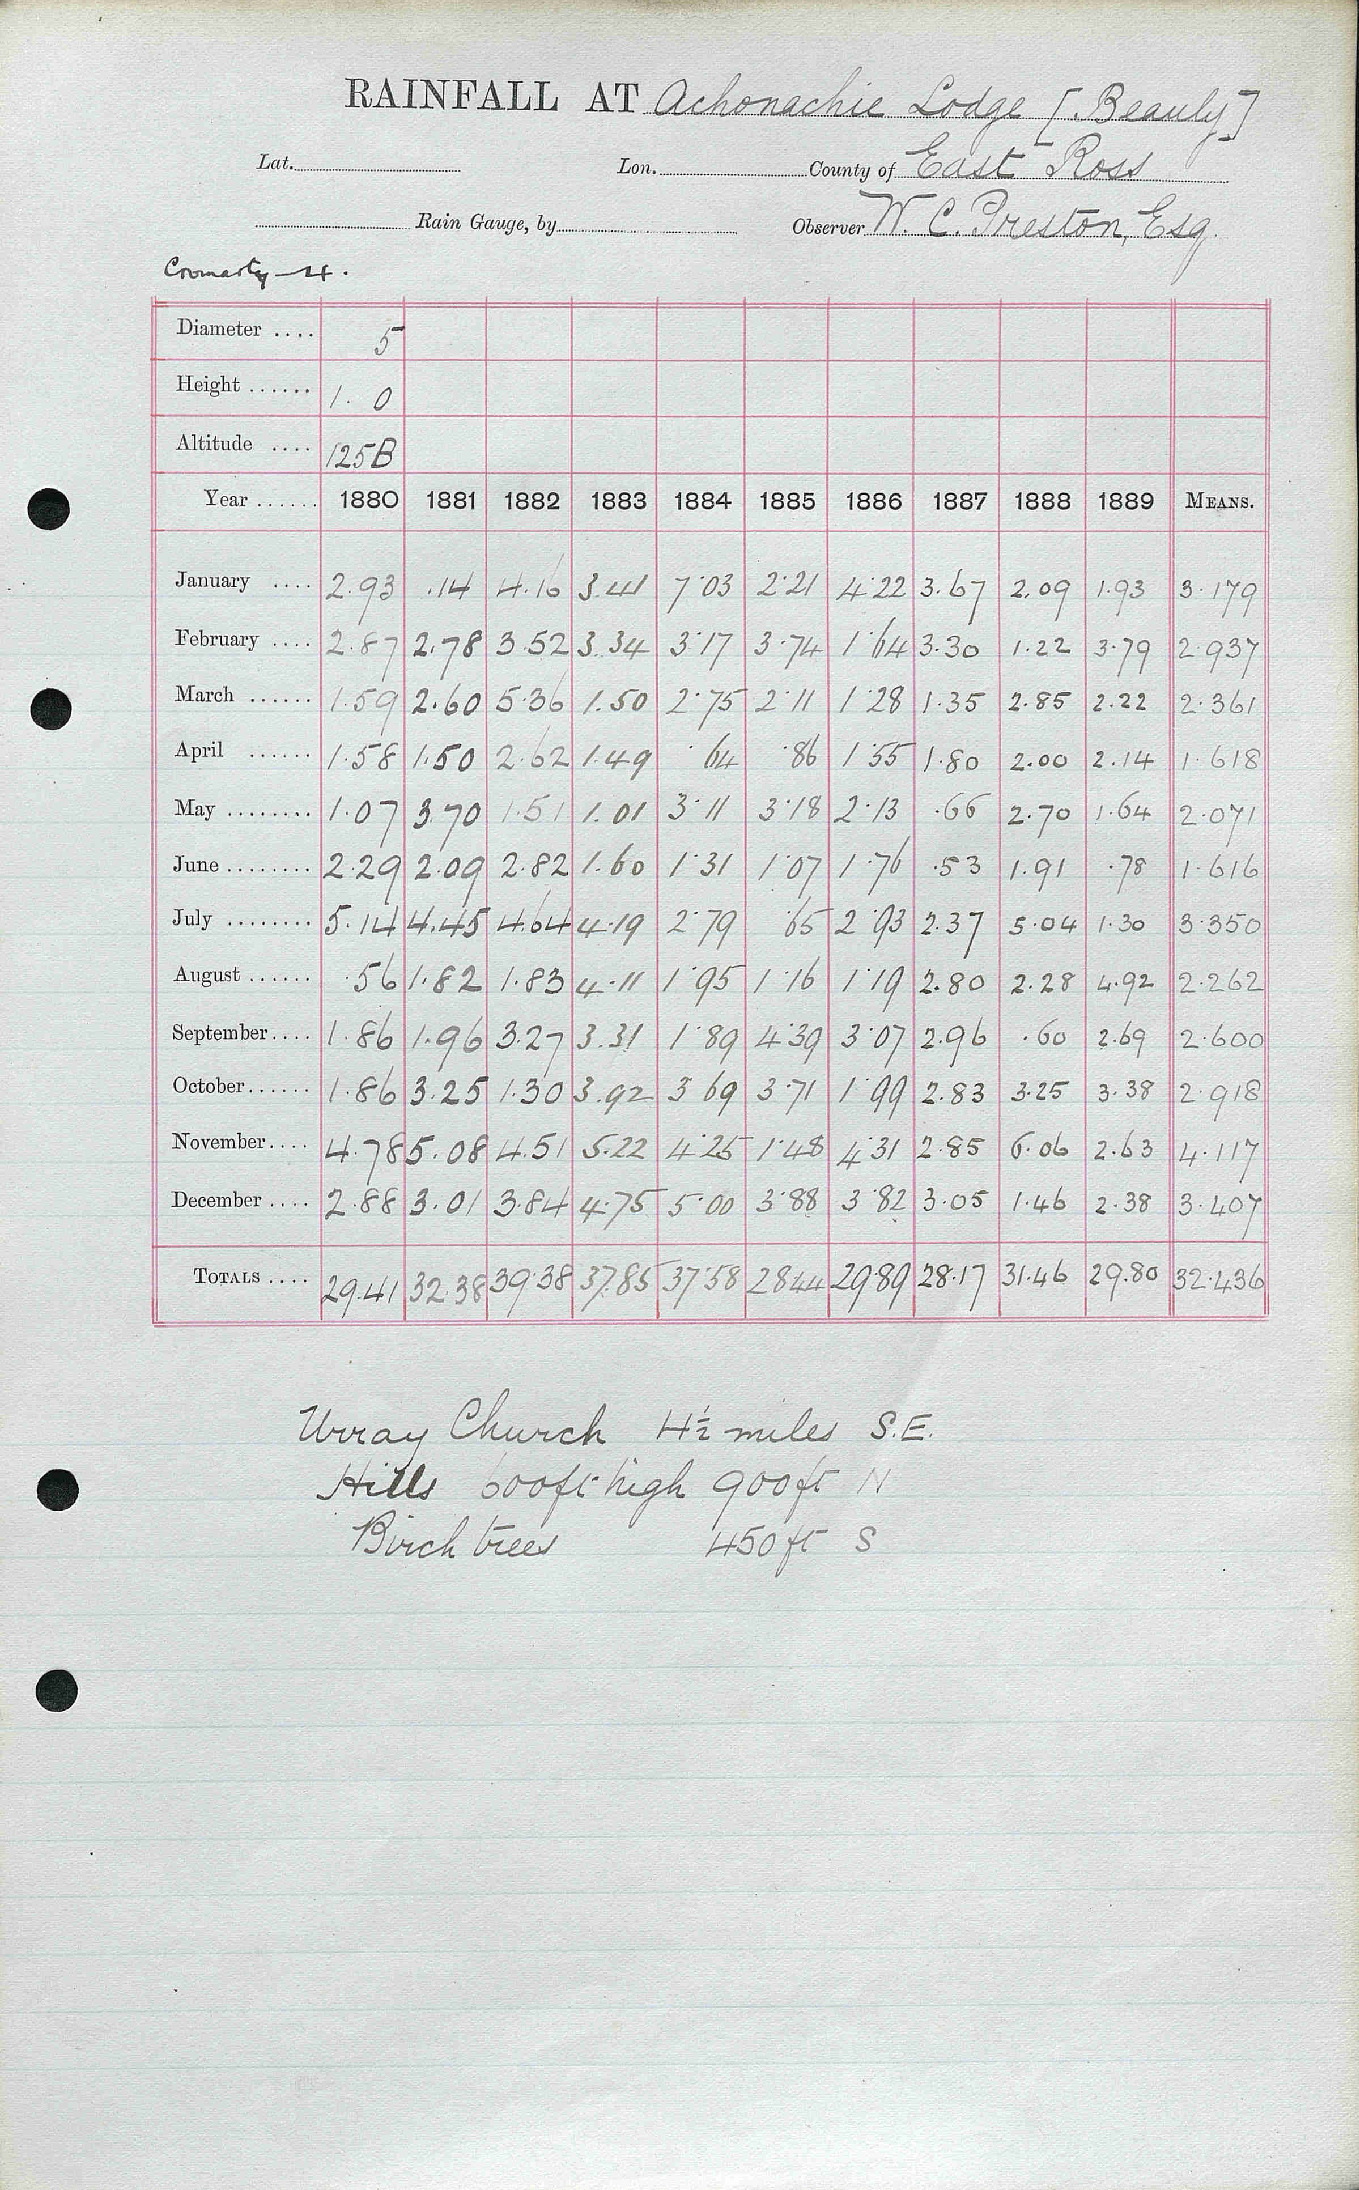 RAINFALL AT Achonachie Lodge [Beauly]
Lat. Lon. County of East Ross
Rain Gauge, by Observer W. C. Preston, Esq.
Cromarty 4.
Diameter .... 5
Height ...... 1. 0
Altitude .... 125B
Year ...... 1880 1881 1882 1883 1884 1885 1886 1887 1888 1889 MEANS.
January .... 2.93 .14 4.16 3.41 7.03 2.21 4.22 3.67 2.09 1.93 3.179
February .... 2.87 2.78 3.52 3.34 3.17 3.74 1.64 3.30 1.22 3.79 2.937
March ...... 1.59 2.60 5.36 1.50 2.75 2.11 1.28 1.35 2.85 2.22 2.361
April ...... 1.58 1.50 2.62 1.49 .64 .86 1.55 1.80 2.00 2.14 1.618
May ........ 1.07 3.70 1.51 1.01 3.11 3.18 2.13 .66 2.70 1.64 2.071
June ........ 2.29 2.09 2.82 1.60 1.31 1.07 1.76 .53 1.91 .78 1.616
July ........ 5.14 4.45 4.64 4.19 2.79 .65 2.93 2.37 5.04 1.30 3.350
August ...... .56 1.82 1.83 4.11 1.95 1.16 1.19 2.80 2.28 4.92 2.262
September.... 1.86 1.96 3.27 3.31 1.89 4.39 3.07 2.96 .60 2.69 2.600
October...... 1.86 3.25 1.30 3.92 3.69 3.71 1.99 2.83 3.25 3.38 2.918
November.... 4.78 5.08 4.51 5.22 4.25 1.48 4.31 2.85 6.06 2.63 4.117
December .... 2.88 3.01 3.84 4.75 5.00 3.88 3.82 3.05 1.46 2.38 3.407
TOTALS .... 29.41 32.38 39.38 37.85 37.58 28.44 29.89 28.17 31.46 29.80 32.436
Urray Church 4½ miles S.E.
Hills 600ft high 900ft N
Birch trees 450ft S